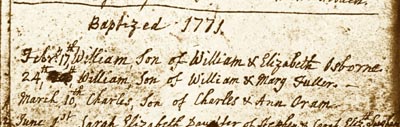 Baptized 1771
Febry 17th William, Son of William & Elizabeth Osborne
24th William, Son of William & Mary Fuller.
March 10th, Charles, Son of Charles & Ann Oram.
June 1st Sarah Elizabeth Daughter of Stephen &